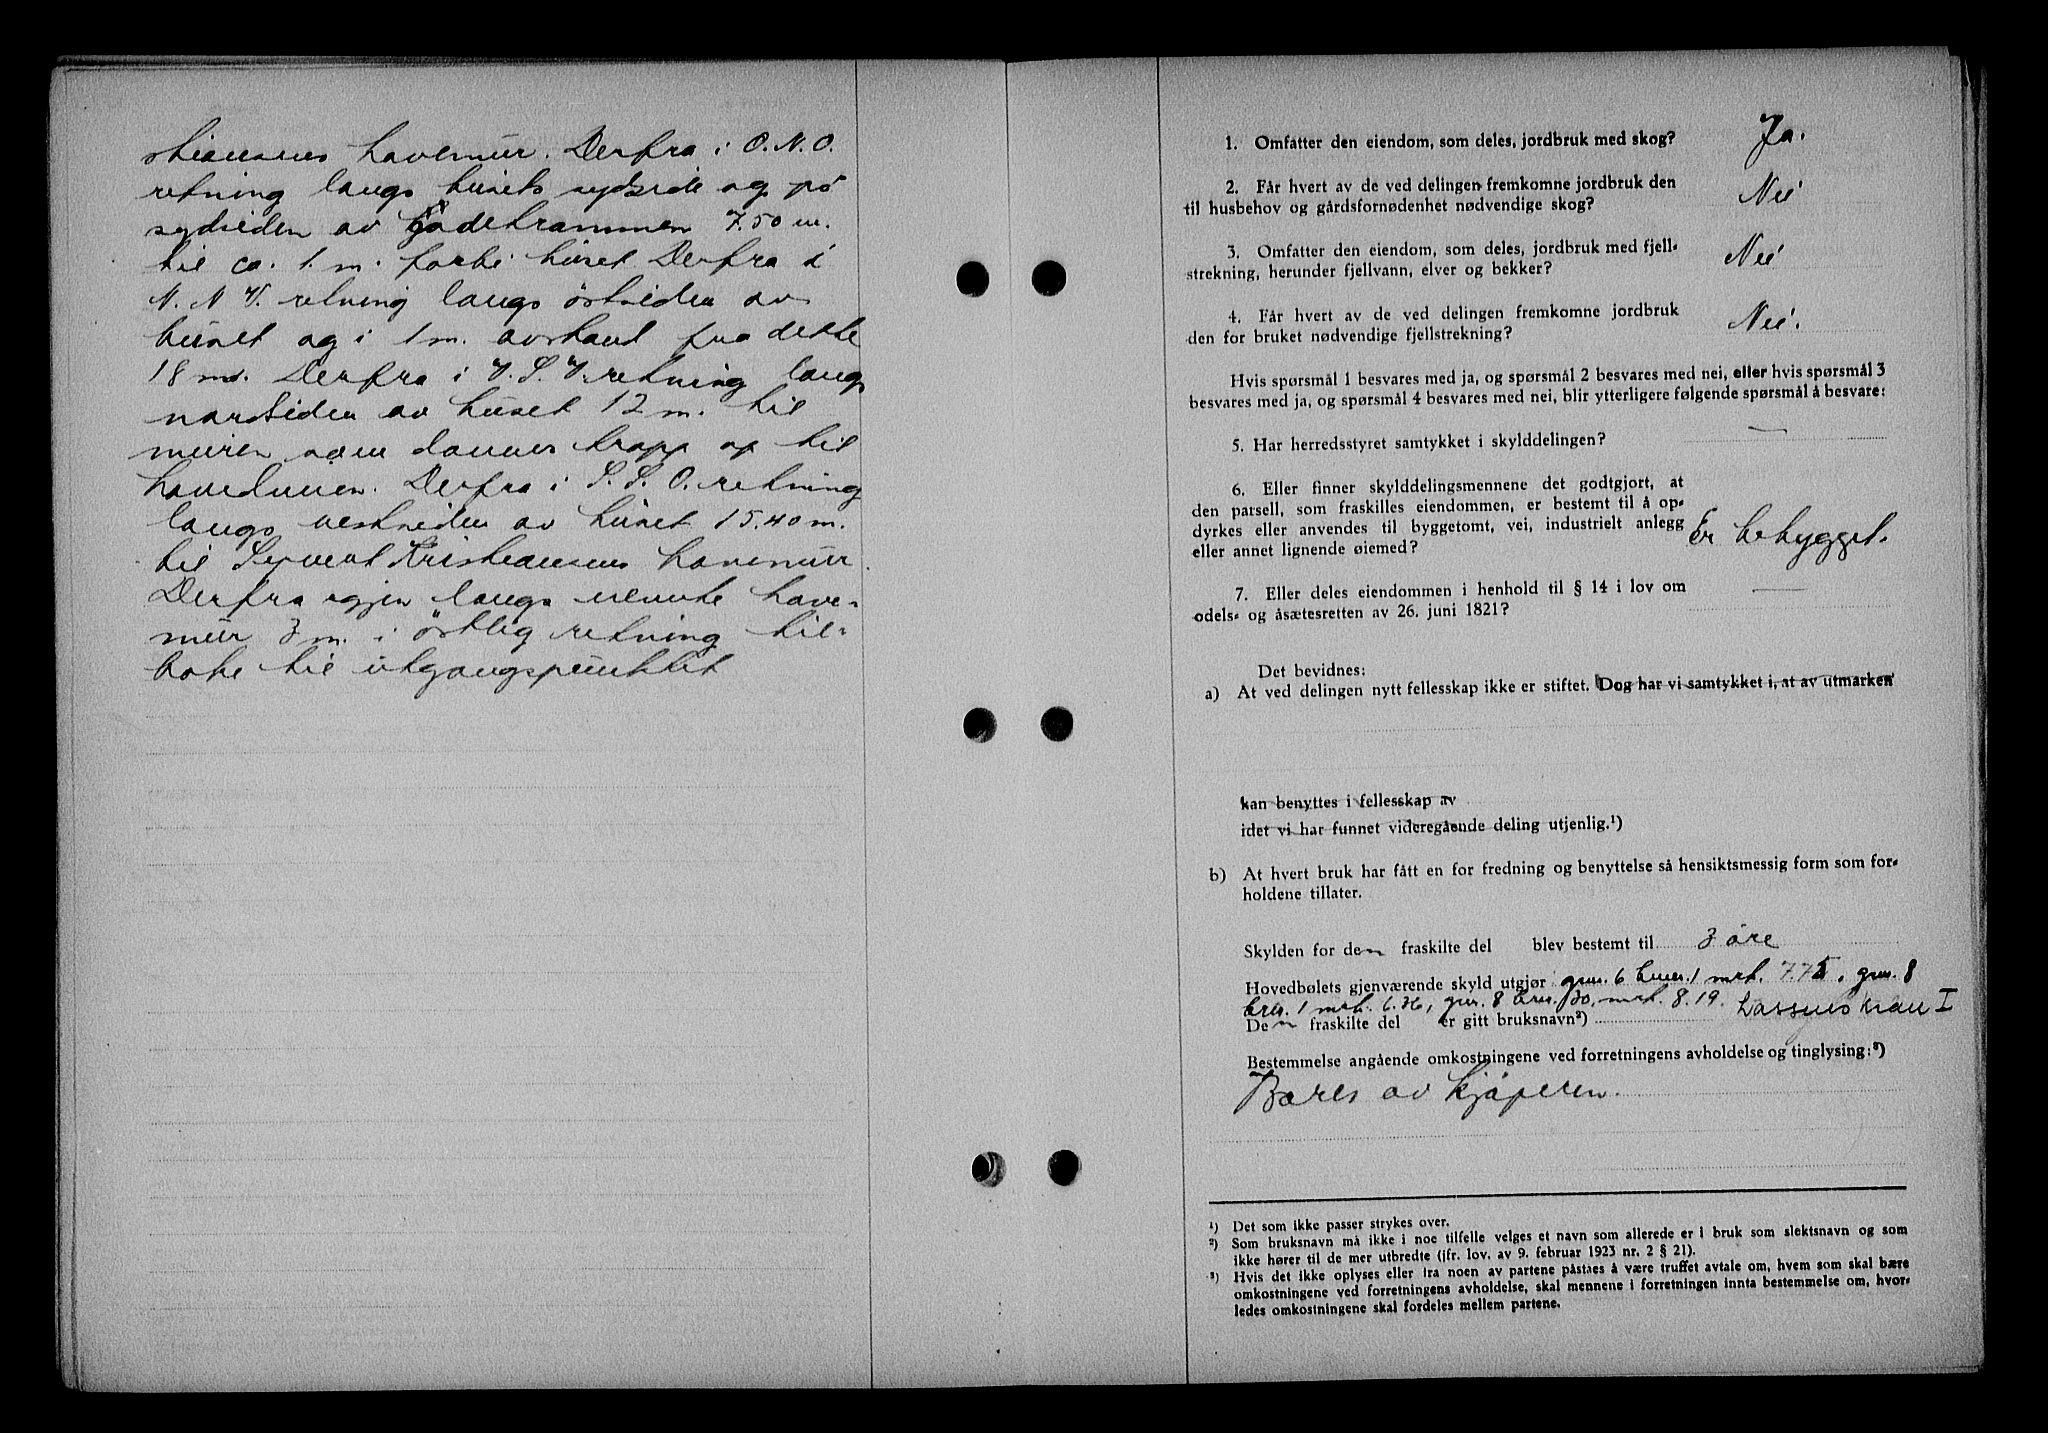 stiansens havemur. Derfra i O.N.O.
retning langs husets sydside og på
sydsiden av 7.50 m.
til ca. 1 m. forbi huset Derfra i
N. N V. retning langs östsiden av
huset og i 1 m. avstand fra dette
18 m. Derfra i V. S. V. retning langs
nordsiden av huset 12 m. til
muren som danner trapp op til
Derfra i S. S. O. retning
langs vestsiden av huset 15.40 m.
til Kristiansens havemur.
Derfra igjen langs nevnte have-
mur 3 m. i östlig retning til-
bake til utgangspunktet
1. Omfatter den eiendom, som deles, jordbruk med skog? Ja.
2. Får hvert av de ved delingen fremkomne jordbruk den
til husbehov og gårdsfornødenhet nødvendige skog? Nei
3. Omfatter den eiendom, som deles, jordbruk med fjell-
strekning, herunder fjellvann, elver og bekker? Nei
4. Får hvert av de ved delingen fremkomne jordbruk
den for bruket nødvendige fjellstrekning? Nei.
Hvis spørsmål 1 besvares med ja, og spørsmål 2 besvares med nei, eller hvis spørsmål 3
besvares med ja, og spørsmål 4 besvares med nei, blir ytterligere følgende spørsmål å besvare:
5. Har herredsstyret samtykket i skylddelingen? —
6. Eller finner skylddelingsmennene det godtgjort, at
den parsell, som fraskilles eiendommen, er bestemt til å op-
dyrkes eller anvendes til byggetomt, vei, industrielt anlegg
eller annet lignende øiemed? Er bebygget.
7. Eller deles eiendommen i henhold til § 14 i lov om
odels- og åsætesretten av 26. juni 1821? —
Det bevidnes:
a) At ved delingen nytt fellesskap ikke er stiftet. Dog har vi samtykket i, at av utmarken
kan benyttes i fellesskap av
idet vi har funnet videregående deling utjenlig.¹)
b) At hvert bruk har fått en for fredning og benyttelse så hensiktsmessig form som for-
holdene tillater.
Skylden for den fraskilte del blev bestemt til 3 öre
Hovedbølets gjenværende skyld utgjør gnr. 6 bnr. 1 mrk. 7.75, gnr. 8
bnr. 1 mrk. 6.36, gnr. 8 bnr. 30, mrk. 8.19.
Den fraskilte del er gitt bruksnavn²) I
Bestemmelse angående omkostningene ved forretningens avholdelse og tinglysing:³)
Bæres av kjöperen.
¹) Det som ikke passer strykes over.
²) Som bruksnavn må ikke i noe tilfelle velges et navn som allerede er i bruk som slektsnavn og som
ikke hører til de mer utbredte (jfr. lov. av 9. februar 1923 nr. 2 § 21).
³) Hvis det ikke oplyses eller fra noen av partene påstaes å være truffet avtale om, hvem som skal bære
omkostningene ved forretningens avholdelse, skal mennene i forretningen innta bestemmelse om, hvor-
ledes omkostningene skal fordeles mellem partene.